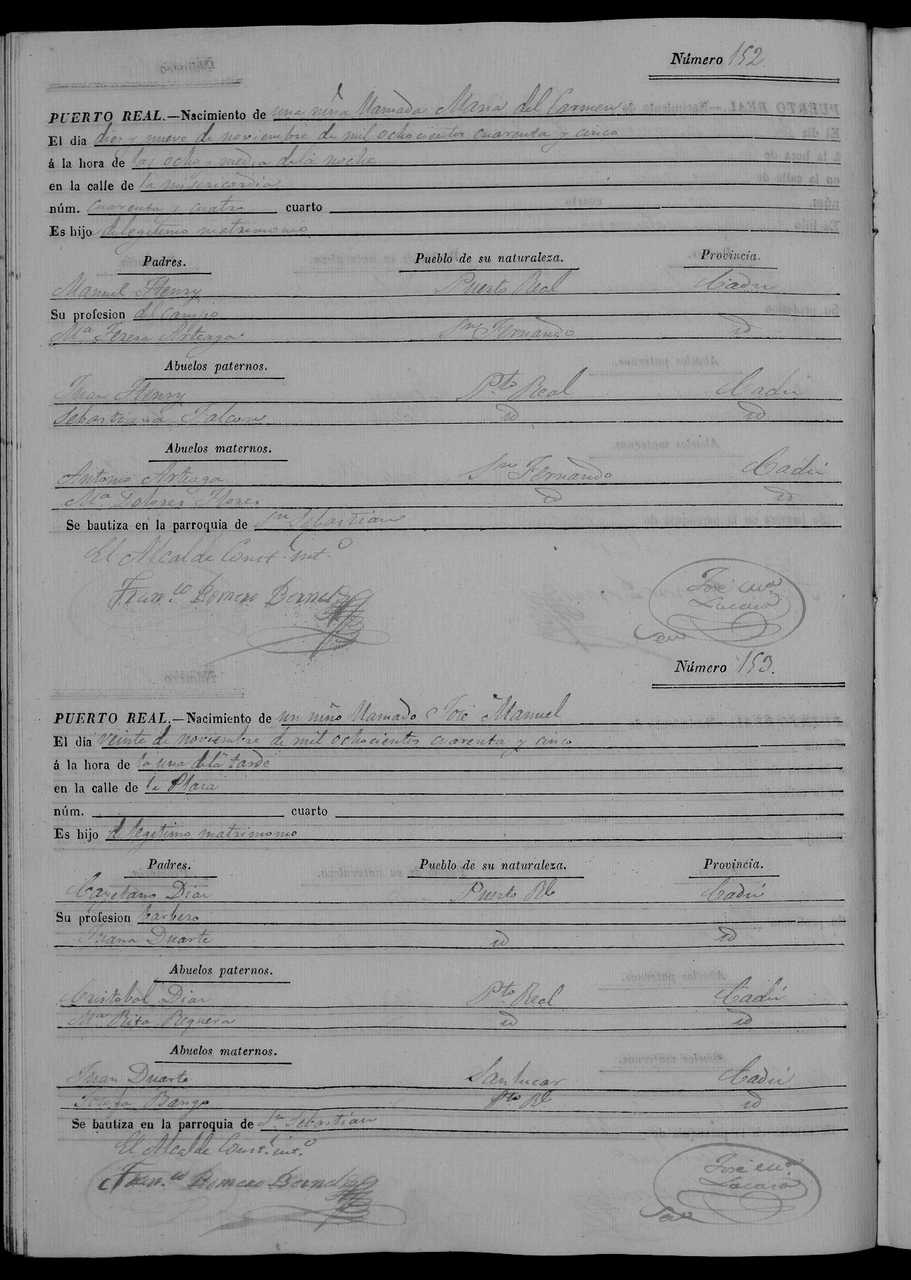 Número 152
PUERTO REAL.—Nacimiento de una niña llamada Maria del Carmen
El dia diez y nueve de noviembre de mil ochocientos cuarenta y cinco
á la hora de las ocho y media de la noche
en la calle de la misericordia
núm. cuarenta y cuatro cuarto
Es hijo de legitimo matrimonio
Padres. Pueblo de su naturaleza. Provincia.
Manuel Henry Puerto Real Cadiz
Su profesion del Campo
Mª Teresa Arteaga Sn Fernando id
Abuelos paternos.
Juan Henry Pto Real Cadiz
Sebastiana Falcon id id
Abuelos maternos.
Antonio Arteaga Sn Fernando Cadiz
Mª Dolores Flores id id
Se bautiza en la parroquia de Sn Sebastian
El Alcalde Const. int.º
Fran.co Romero Bernal
José
Número 153.
PUERTO REAL.—Nacimiento de un niño llamado José Manuel
El dia veinte de noviembre de mil ochocientos cuarenta y cinco
á la hora de la una de la tarde
en la calle de la Plaza
núm. cuarto
Es hijo de legitimo matrimonio
Padres. Pueblo de su naturaleza. Provincia.
Cayetano Diaz Puerto Rl Cadiz
Su profesion barbero
Duarte id id
Abuelos paternos.
Cristobal Diaz Pto Real Cadiz
Mª Rita Reguera id id
Abuelos maternos.
Juan Duarte Sanlucar Cadiz
Josefa Pto Rl id
Se bautiza en la parroquia de Sn Sebastian
El Alcalde Const. int.º
Fran.co Romero Bernal
José